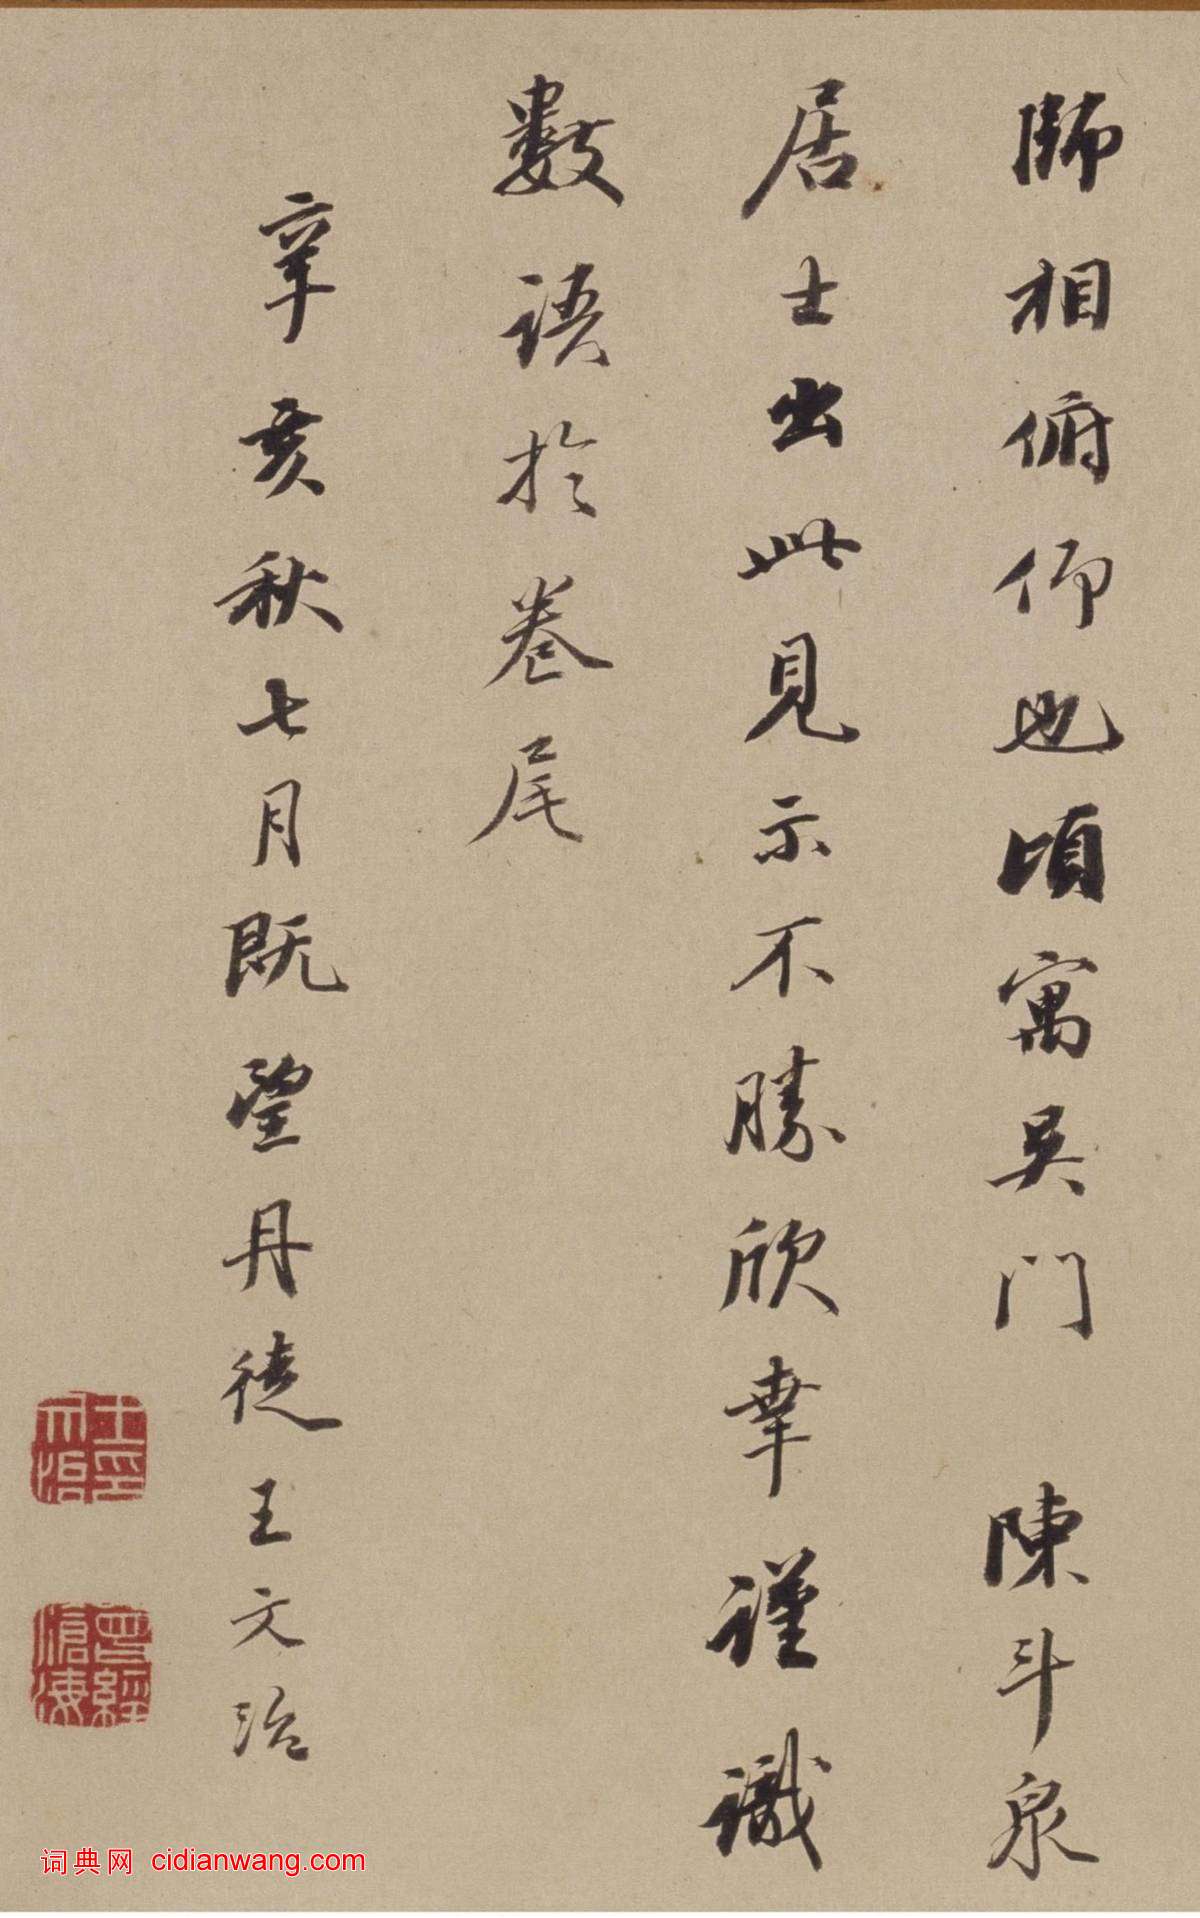 師相俯仰也頃寓吳門 陳斗泉
居士出此見示不勝欣幸謹識
數語於卷尾
辛亥秋七月既望丹徒王文治
王文治印
曾經滄海
词典网 cidianwang.com